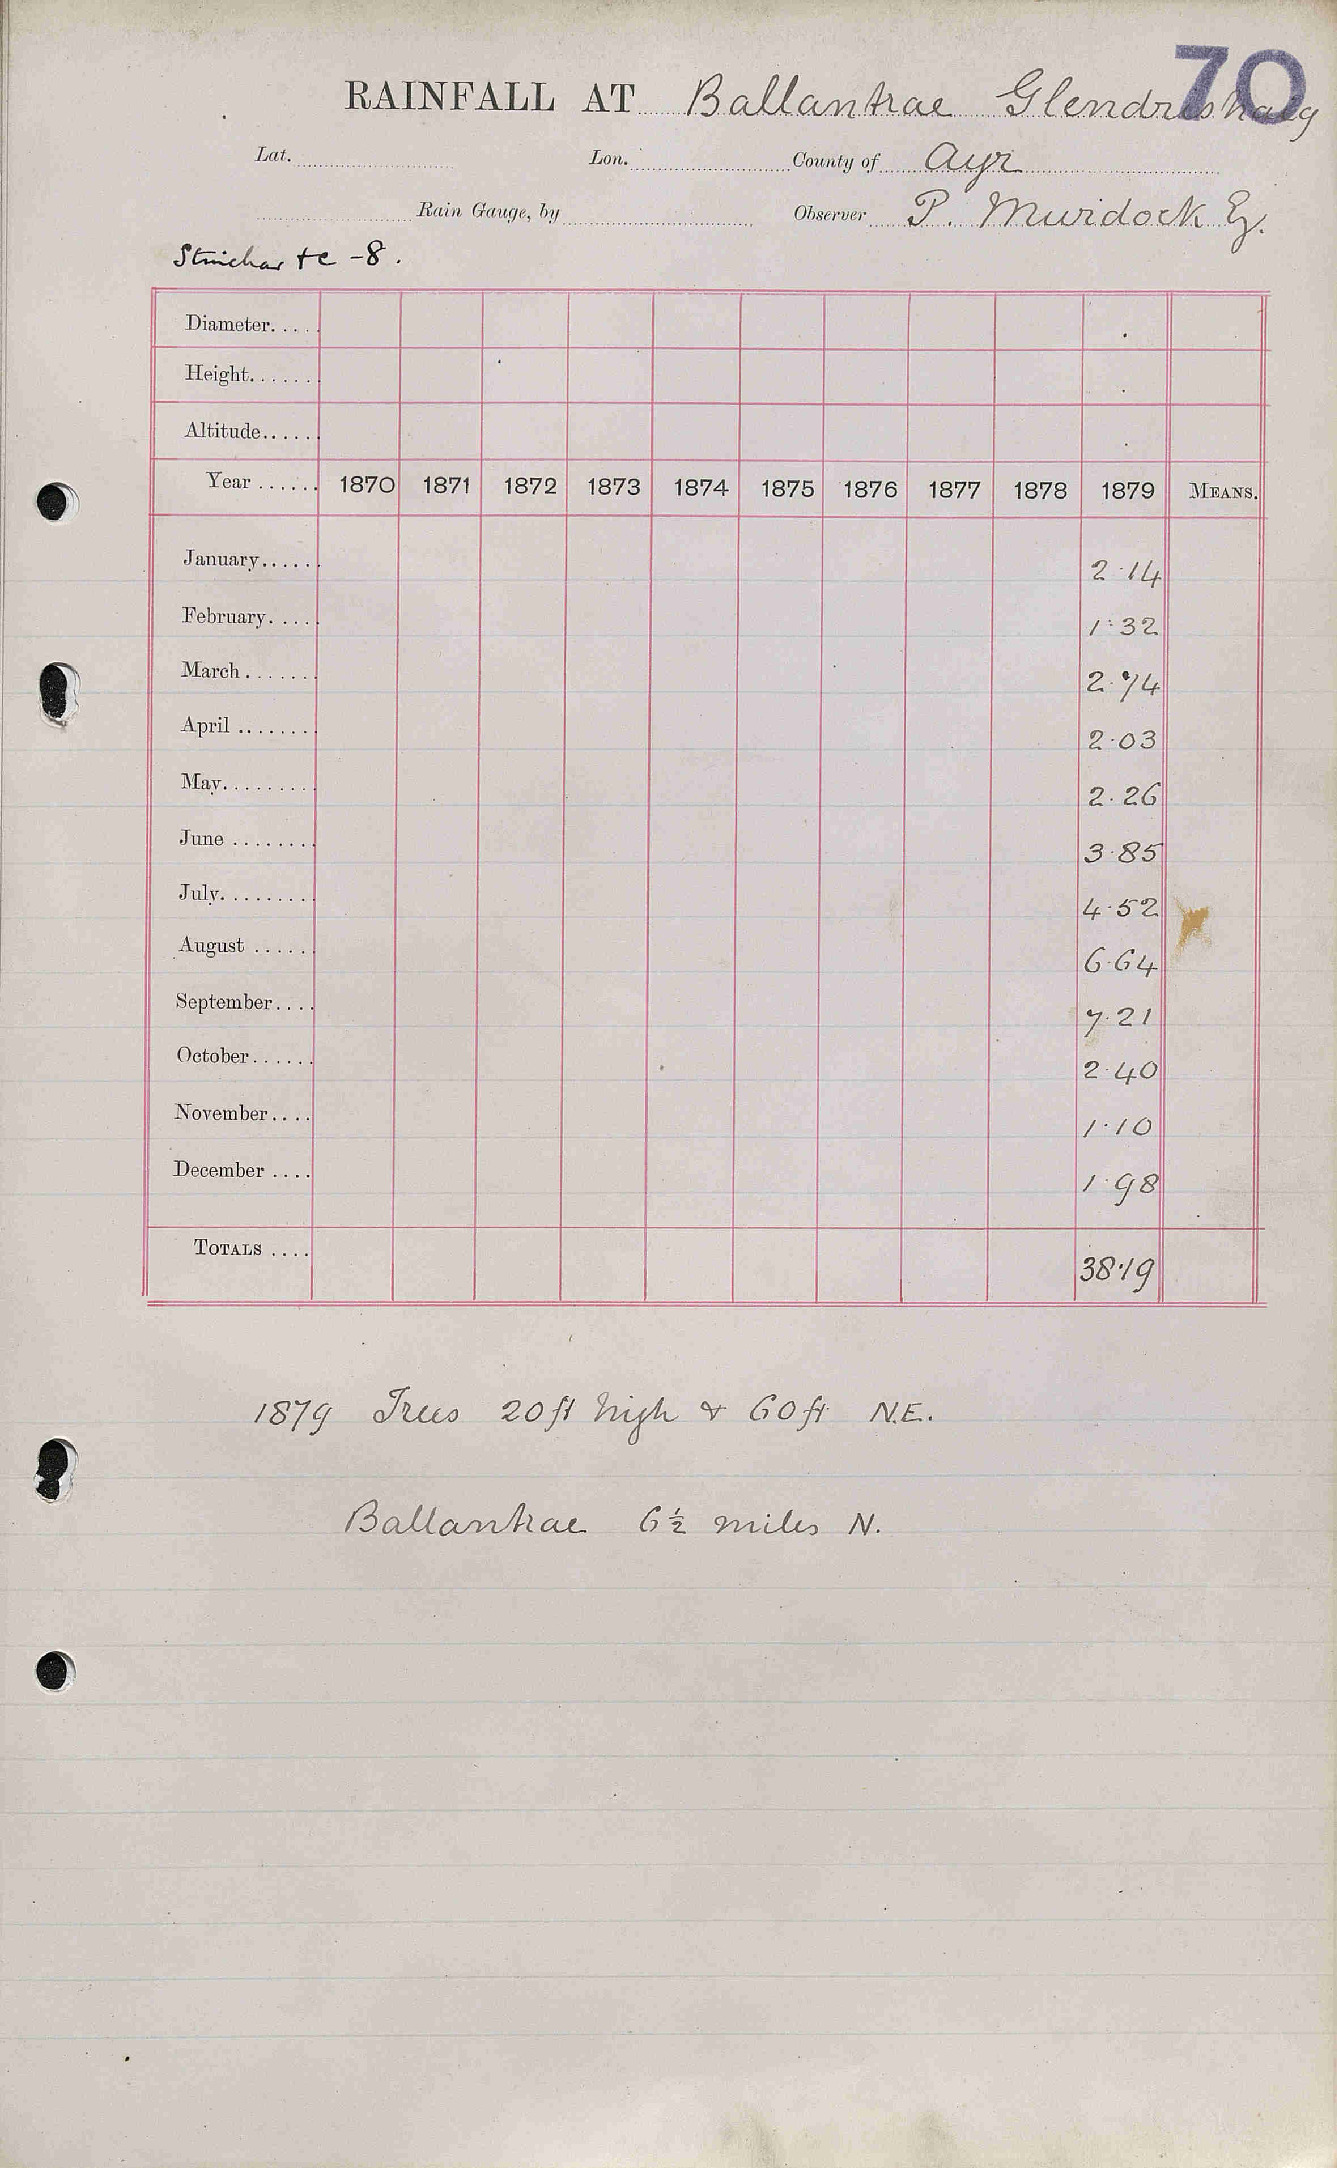 70
RAINFALL AT Ballantrae Glendrishaig
Lat. Lon. County of Ayr
Rain Gauge, by Observer P. Murdock Esq.
Stinchar &c -8.
Diameter.....
Height.......
Altitude......
Year ...... 1870 1871 1872 1873 1874 1875 1876 1877 1878 1879 MEANS.
January...... 2·14
February..... 1·32
March....... 2·74
April ........ 2·03
May......... 2·26
June ........ 3·85
July......... 4·52
August ...... 6·64
September.... 7·21
October...... 2·40
November.... 1·10
December .... 1·98
TOTALS .... 38·19
1879 Trees 20ft high & 60ft N.E.
Ballantrae 6½ miles N.